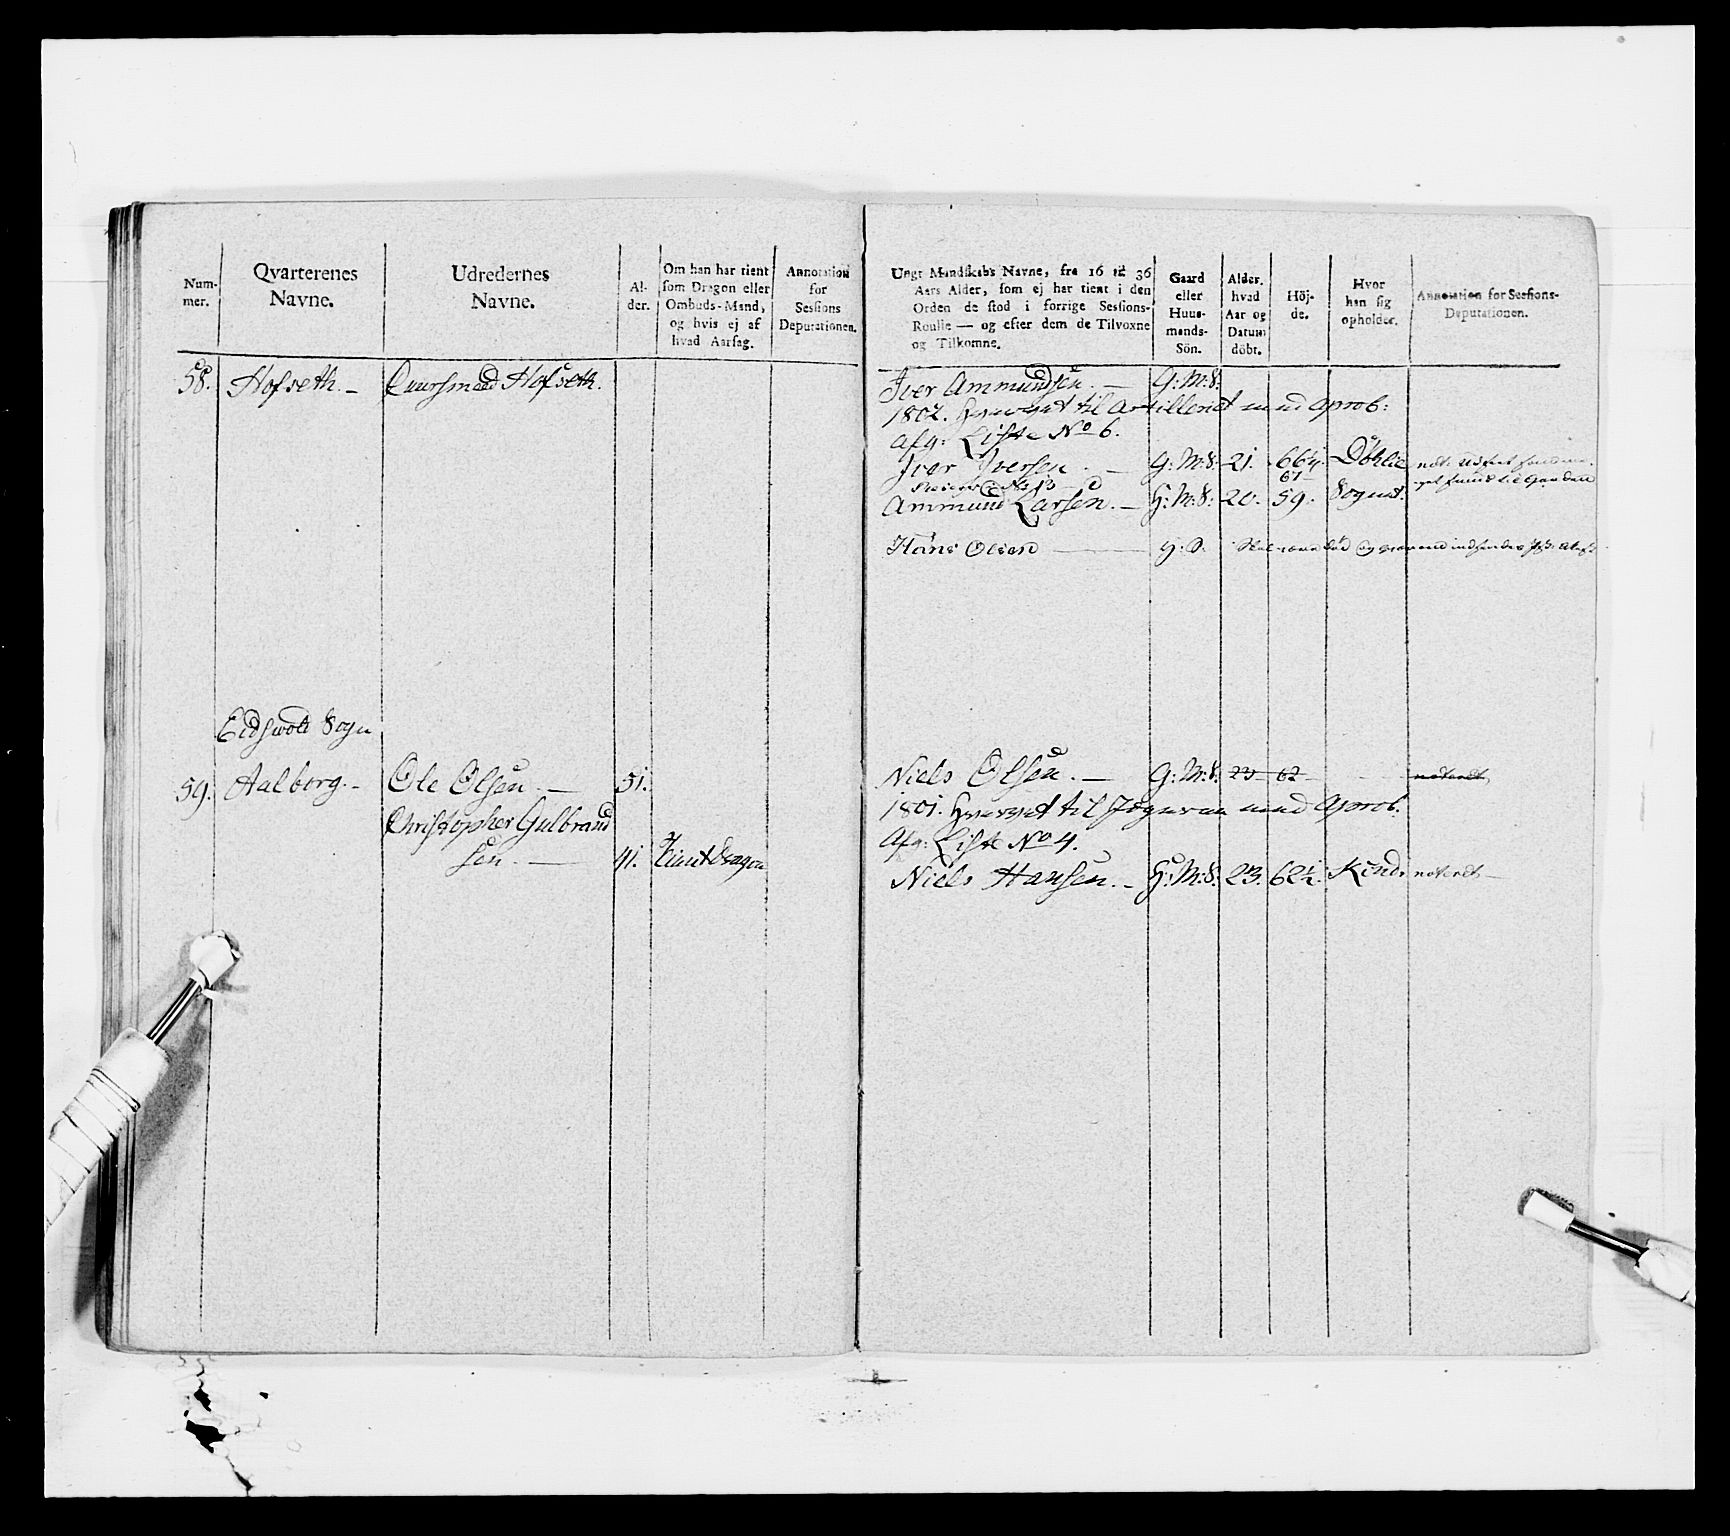 Num-
mer.
Qvarterenes
Navne.
Udredernes
Navne.
Al-
der.
Om han har tient
som Dragon eller
Ombuds-Mand,
og hvis ej af
hvad Aarsag.
Annotation
for
Sessions
Deputationen.
58. Hofseth. - Hofseth.
Eidswold Sogn
59. Aalborg. - Ole Olsen. — 51.
Christopher Gulbrand
sen. — 41. Tient Dragon
Ungt Mandskabs Navne, fra 16 til 36
Aars Alder, som ej har tient i den
Orden de stod i forrige Sessions-
Roulle — og efter dem de Tilvoxne
og Tilkomne.
Gaard
eller
Huus-
mands-
Sön.
Alder.
hvad
Aar og
Datum
döbt.
Höj-
de.
Hvor
han sig
opholder.
Annotation for Sessions-
Deputationen.
Iver Ammundsen. — G:M:S:
1802. hvervet til Artilleriet med Aprob:
Afg: Liste No 6.
Iver Iversen. — G:M:S: 21. 66¼.
67
Ammund Larsen. — H:M:S: 20. 59. Sognet.
Hans Olsen — H:S.
Niels Olsen. — G:M:S. 23 62 noteret
1801. hvervet til Jægerne med Aprob.
Afg: Liste No 4.
Niels Hansen. - H:M:S: 23. 62½. noteret —